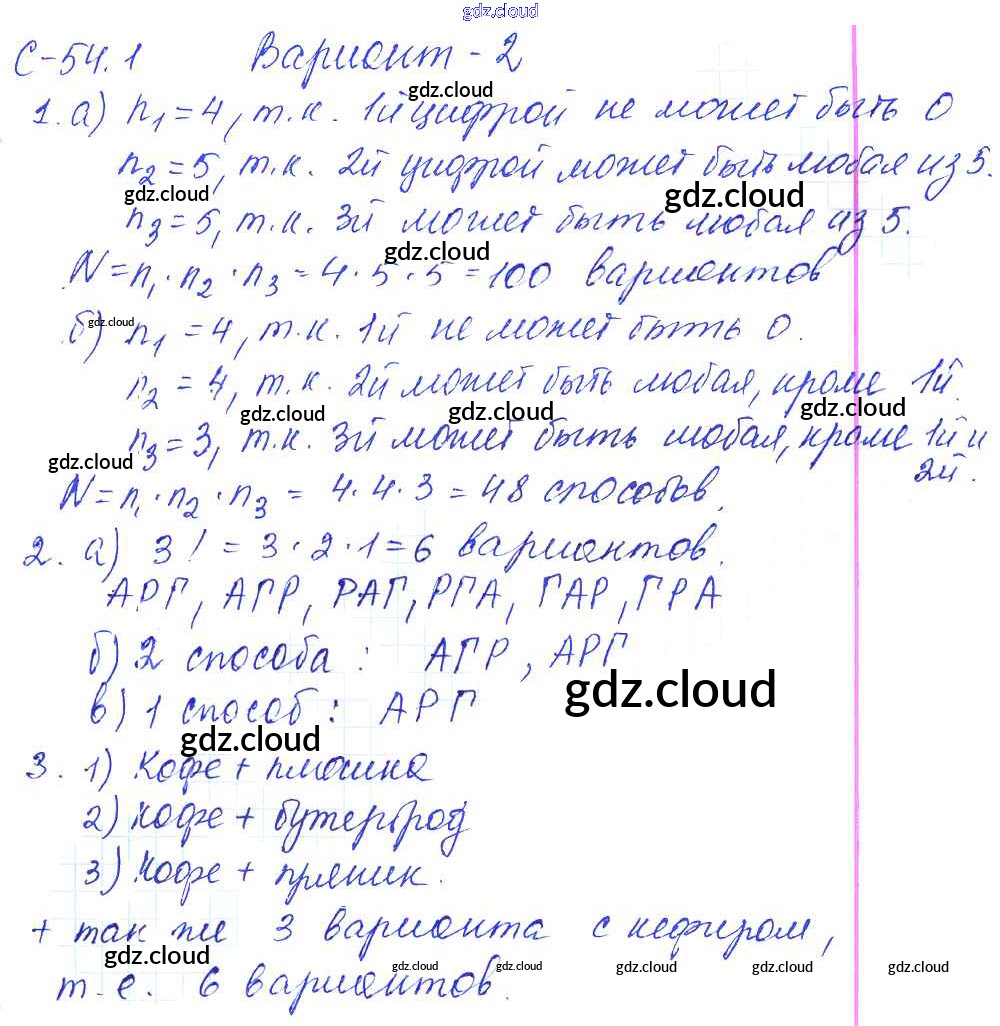 gdz.cloud
С-54.1 Вариант - 2
gdz.cloud
1. а) n₁ = 4, т.к. 1й цифрой не может быть 0
n₂ = 5, т.к. 2й цифрой может быть любая из 5.
gdz.cloud gdz.cloud
n₃ = 5, т.к. 3й может быть любая из 5.
gdz.cloud
N = n₁ · n₂ · n₃ = 4 · 5 · 5 = 100 вариантов
gdz.cloud
б) n₁ = 4, т.к. 1й не может быть 0.
n₂ = 4, т.к. 2й может быть любая, кроме 1й.
gdz.cloud gdz.cloud gdz.cloud
n₃ = 3, т.к. 3й может быть любая, кроме 1й и
2й.
gdz.cloud
N = n₁ · n₂ · n₃ = 4 · 4 · 3 = 48 способов.
2. а) 3! = 3 · 2 · 1 = 6 вариантов.
АРГ, АГР, РАГ, РГА, ГАР, ГРА
б) 2 способа : АГР, АРГ
gdz.cloud
в) 1 способ : АРГ
gdz.cloud
3. 1) Кофе + плюшка
2) кофе + бутерброд
3) Кофе + пряник.
+ так же 3 варианта с кефиром,
gdz.cloud gdz.cloud gdz.cloud gdz.cloud gdz.cloud gdz.cloud
т.е. 6 вариантов.